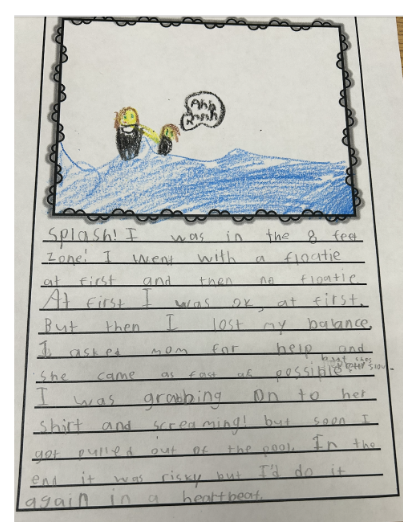 Ahh
Splash! I was in the 8 feet
zone! I went with a floatie
at first and then no floatie.
At first I was ok, at first.
But then I lost my balance.
I asked mom for help and
she came as fast as possible
I was grabbing on to her
shirt and screaming! but soon I
got pulled out of the pool. In the
end it was risky but I'd do it
again in a heartbeat.